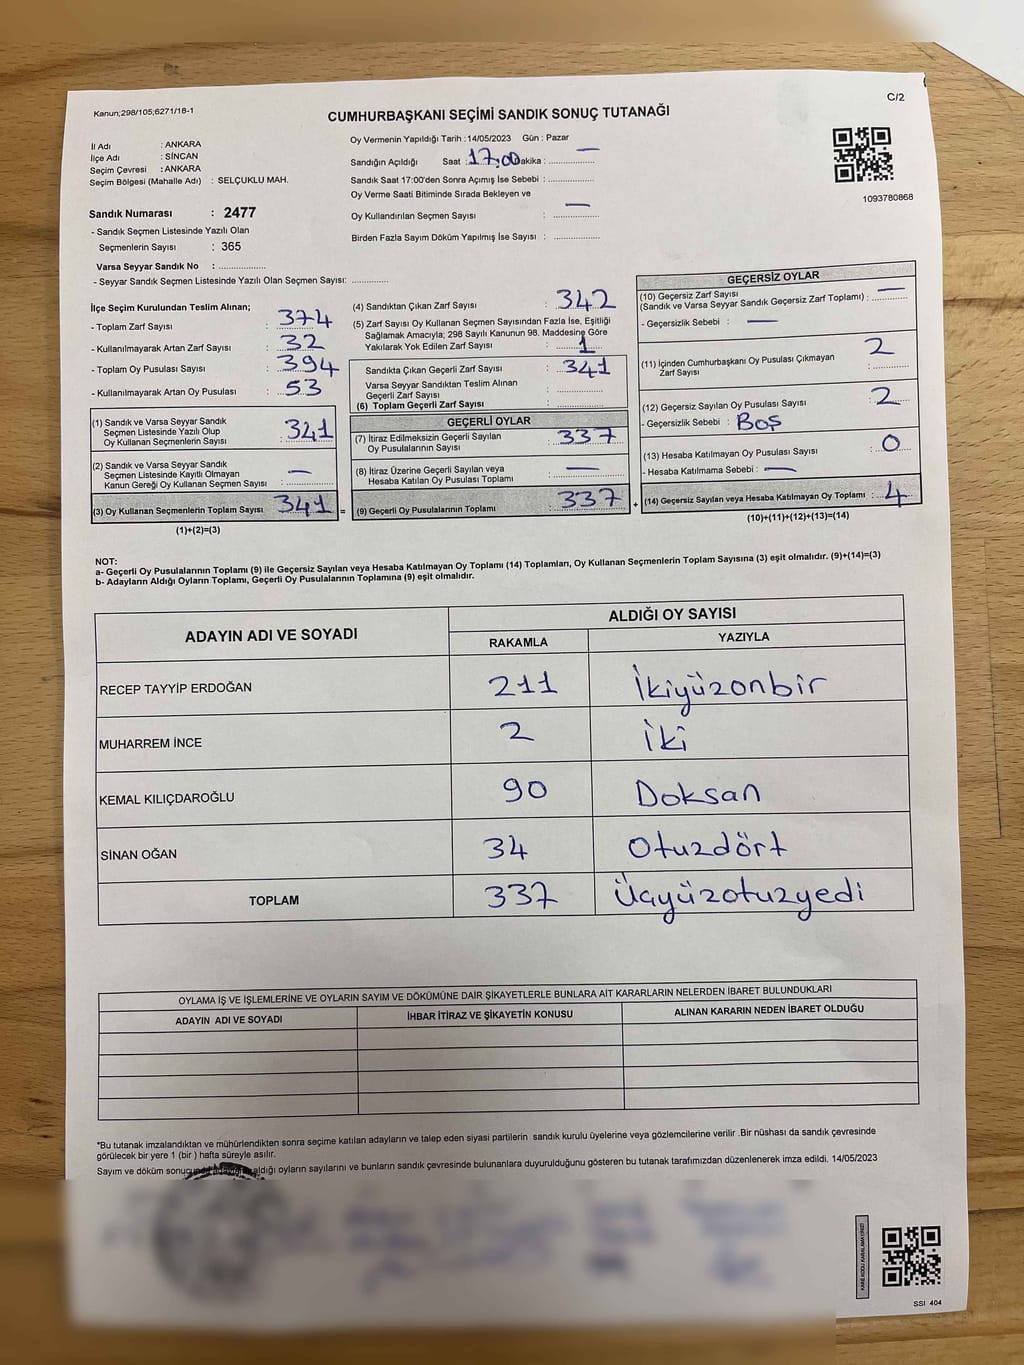 Kanun;298/105;6271/18-1
C/2
CUMHURBAŞKANI SEÇİMİ SANDIK SONUÇ TUTANAĞI
İl Adı : ANKARA
İlçe Adı : SİNCAN
Seçim Çevresi : ANKARA
Seçim Bölgesi (Mahalle Adı) : SELÇUKLU MAH.
Sandık Numarası : 2477
- Sandık Seçmen Listesinde Yazılı Olan
Seçmenlerin Sayısı : 365
Varsa Seyyar Sandık No : ....................
- Seyyar Sandık Seçmen Listesinde Yazılı Olan Seçmen Sayısı: ..............
Oy Vermenin Yapıldığı Tarih :14/05/2023 Gün : Pazar
Sandığın Açıldığı Saat : 17.00 Dakika : — ..............
Sandık Saat 17:00'den Sonra Açımış İse Sebebi : ..............
Oy Verme Saati Bitiminde Sırada Bekleyen ve
Oy Kullandırılan Seçmen Sayısı : — ..............
Birden Fazla Sayım Döküm Yapılmış İse Sayısı : ..............
1093780868
İlçe Seçim Kurulundan Teslim Alınan;
- Toplam Zarf Sayısı : 374
- Kullanılmayarak Artan Zarf Sayısı : 32
- Toplam Oy Pusulası Sayısı : 394
- Kullanılmayarak Artan Oy Pusulası : 53
(1) Sandık ve Varsa Seyyar Sandık
Seçmen Listesinde Yazılı Olup
Oy Kullanan Seçmenlerin Sayısı : 341
(2) Sandık ve Varsa Seyyar Sandık
Seçmen Listesinde Kayıtlı Olmayan
Kanun Gereği Oy Kullanan Seçmen Sayısı : —
(3) Oy Kullanan Seçmenlerin Toplam Sayısı : 341 =
(1)+(2)=(3)
(4) Sandıktan Çıkan Zarf Sayısı : 342
(5) Zarf Sayısı Oy Kullanan Seçmen Sayısından Fazla İse, Eşitliği
Sağlamak Amacıyla; 298 Sayılı Kanunun 98. Maddesine Göre
Yakılarak Yok Edilen Zarf Sayısı : 1
Sandıkta Çıkan Geçerli Zarf Sayısı : 341
Varsa Seyyar Sandıktan Teslim Alınan
Geçerli Zarf Sayısı : ..............
(6) Toplam Geçerli Zarf Sayısı : ..............
GEÇERLİ OYLAR
(7) İtiraz Edilmeksizin Geçerli Sayılan
Oy Pusulasının Sayısı : 337
(8) İtiraz Üzerine Geçerli Sayılan veya
Hesaba Katılan Oy Pusulası Toplamı : —
(9) Geçerli Oy Pusulalarının Toplamı : 337 +
GEÇERSİZ OYLAR
(10) Geçersiz Zarf Sayısı
(Sandık ve Varsa Seyyar Sandık Geçersiz Zarf Toplamı) : —
- Geçersizlik Sebebi : —
(11) İçinden Cumhurbaşkanı Oy Pusulası Çıkmayan
Zarf Sayısı : 2
(12) Geçersiz Sayılan Oy Pusulası Sayısı : 2
- Geçersizlik Sebebi : BOŞ
(13) Hesaba Katılmayan Oy Pusulası Sayısı : 0
- Hesaba Katılmama Sebebi : —
(14) Geçersiz Sayılan veya Hesaba Katılmayan Oy Toplamı : 4
(10)+(11)+(12)+(13)=(14)
NOT:
a- Geçerli Oy Pusulalarının Toplamı (9) ile Geçersiz Sayılan veya Hesaba Katılmayan Oy Toplamı (14) Toplamları, Oy Kullanan Seçmenlerin Toplam Sayısına (3) eşit olmalıdır. (9)+(14)=(3)
b- Adayların Aldığı Oyların Toplamı, Geçerli Oy Pusulalarının Toplamına (9) eşit olmalıdır.
ADAYIN ADI VE SOYADI
ALDIĞI OY SAYISI
RAKAMLA YAZIYLA
RECEP TAYYİP ERDOĞAN 211 İkiyüzonbir
MUHARREM İNCE 2 İki
KEMAL KILIÇDAROĞLU 90 Doksan
SİNAN OĞAN 34 Otuzdört
TOPLAM 337 Üçyüzotuzyedi
OYLAMA İŞ VE İŞLEMLERİNE VE OYLARIN SAYIM VE DÖKÜMÜNE DAİR ŞİKAYETLERLE BUNLARA AİT KARARLARIN NELERDEN İBARET BULUNDUKLARI
ADAYIN ADI VE SOYADI İHBAR İTİRAZ VE ŞİKAYETİN KONUSU ALINAN KARARIN NEDEN İBARET OLDUĞU
*Bu tutanak imzalandıktan ve mühürlendikten sonra seçime katılan adayların ve talep eden siyasi partilerin sandık kurulu üyelerine veya gözlemcilerine verilir .Bir nüshası da sandık çevresinde
görülecek bir yere 1 (bir ) hafta süreyle asılır.
Sayım ve döküm sonucunda adayların aldığı oyların sayılarını ve bunların sandık çevresinde bulunanlara duyurulduğunu gösteren bu tutanak tarafımızdan düzenlenerek imza edildi. 14/05/2023
SSI 404